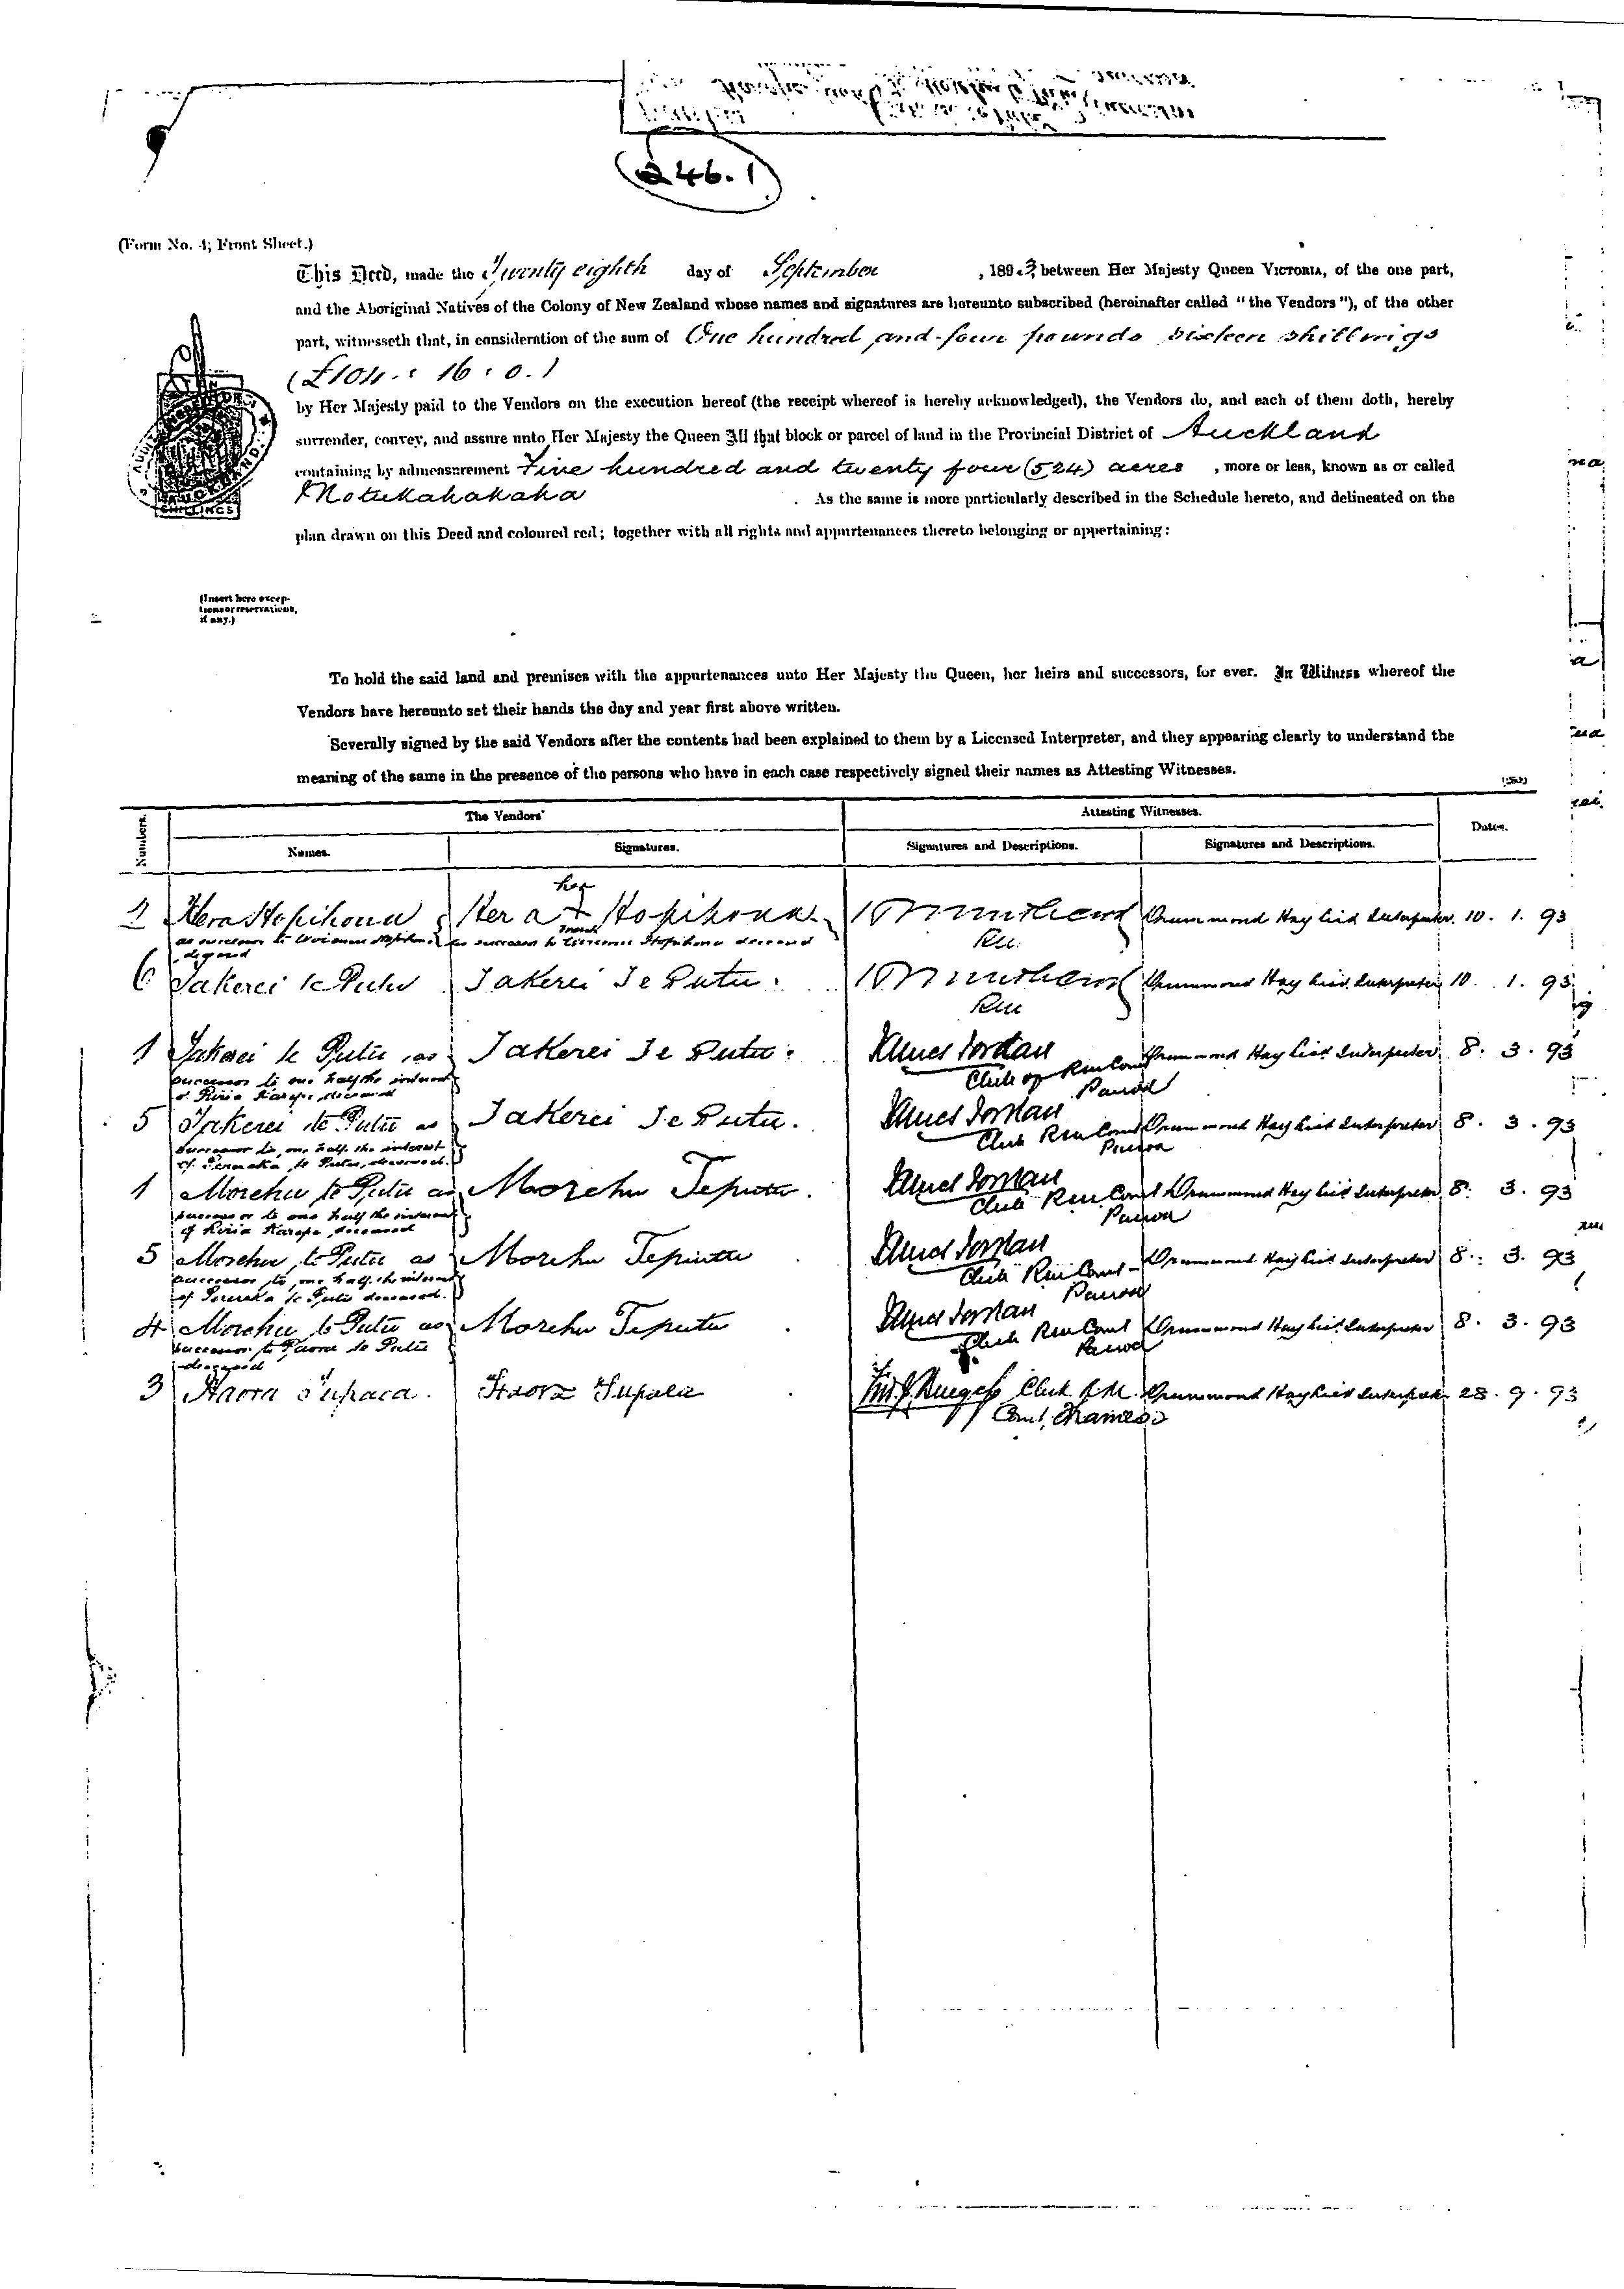 246.1
(Form No. 4; Front Sheet.)
This Deed, made the Twenty eighth day of September , 1893, between Her Majesty Queen VICTORIA, of the one part,
and the Aboriginal Natives of the Colony of New Zealand whose names and signatures are hereunto subscribed (hereinafter called "the Vendors"), of the other
part, witnesseth that, in consideration of the sum of One hundred and four pounds sixteen shillings
(£104 : 16 : 0.)
by Her Majesty paid to the Vendors on the execution hereof (the receipt whereof is hereby acknowledged), the Vendors do, and each of them doth, hereby
surrender, convey, and assure unto Her Majesty the Queen All that block or parcel of land in the Provincial District of Auckland
containing by admeasurement Five hundred and twenty four (524) acres , more or less, known as or called
Motukahakaha . As the same is more particularly described in the Schedule hereto, and delineated on the
plan drawn on this Deed and coloured red; together with all rights and appurtenances thereto belonging or appertaining:
(Insert here excep-
tions or reservations,
if any.)
To hold the said land and premises with the appurtenances unto Her Majesty the Queen, her heirs and successors, for ever. In Witness whereof the
Vendors have hereunto set their hands the day and year first above written.
Severally signed by the said Vendors after the contents had been explained to them by a Licensed Interpreter, and they appearing clearly to understand the
meaning of the same in the presence of the persons who have in each case respectively signed their names as Attesting Witnesses.
Numbers. The Vendors' Attesting Witnesses. Dates.
Names. Signatures. Signatures and Descriptions. Signatures and Descriptions.
her
2 Hera Hopihona Hera + Hopihona Drummond Hay Licd Interpreter. 10. 1. 93
as successor to Hopihona mark as successor to Hopihona deceased
deceased
6 Takerei te Putu Takerei Te Putu. Drummond Hay Licd. Interpreter 10. 1. 93
1 Takerei te Putu as Takerei Te Putu. James Jordan Drummond Hay Licd Interpreter 8. 3. 93
successor to one half the interest Clerk of Rm Court
of Riria Karepe deceased Paeroa
5 Takerei te Putu as Takerei Te Putu. James Jordan Drummond Hay Licd Interpreter 8. 3. 93
successor to one half the interest Clerk Rm Court
of te Putu, deceased. Paeroa
1 Morehu te Putu as Morehu Teputu. James Jordan Drummond Hay Licd Interpreter 8. 3. 93
successor to one half the interest Clerk Rm Court
of Riria Karepe, deceased Paeroa
5 Morehu te Putu as Morehu Teputu James Jordan Drummond Hay Licd Interpreter 8. 3. 93
successor to one half the interest Clerk Rm Court
of te Putu deceased. Paeroa
4 Morehu te Putu as Morehu Teputu James Jordan Drummond Hay Licd Interpreter 8. 3. 93
successor to Paora te Putu Clerk Rm Court
deceased Paeroa
3 Haora Tupaea. Haora Tupaea Burgess Clerk R.M. Drummond Hay Licd Interpreter 28. 9. 93
Court, Thames